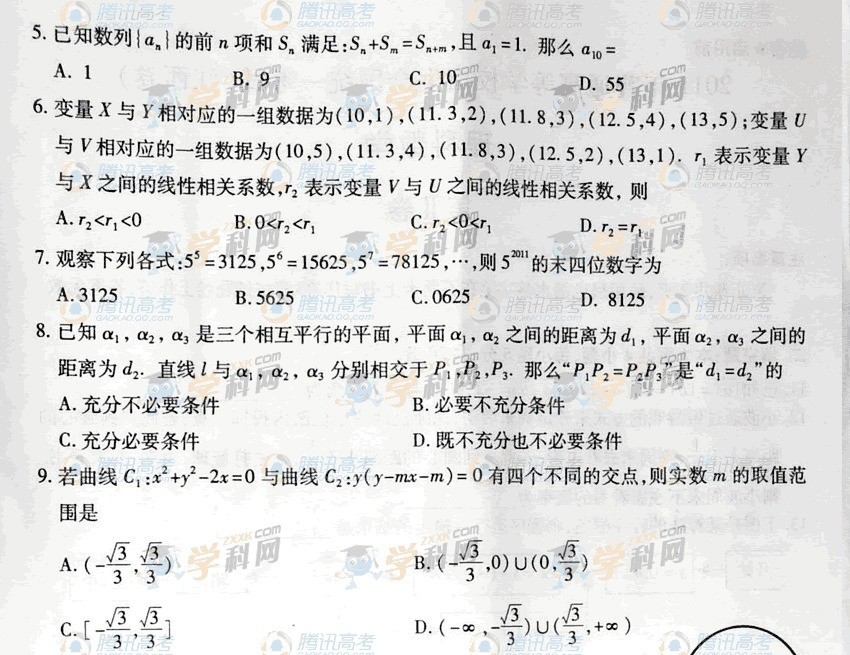 5. 已知数列{aₙ}的前 n 项和 Sₙ 满足:Sₙ+Sₘ=Sₙ₊ₘ,且 a₁=1. 那么 a₁₀=
A. 1 B. 9 C. 10 D. 55
6. 变量 X 与 Y 相对应的一组数据为(10,1),(11.3,2),(11.8,3),(12.5,4),(13,5);变量 U
与 V 相对应的一组数据为(10,5),(11.3,4),(11.8,3),(12.5,2),(13,1). r₁ 表示变量 Y
与 X 之间的线性相关系数,r₂ 表示变量 V 与 U 之间的线性相关系数, 则
A. r₂<r₁<0 B. 0<r₂<r₁ C. r₂<0<r₁ D. r₂=r₁
7. 观察下列各式:5⁵=3125,5⁶=15625,5⁷=78125,…,则 5²⁰¹¹ 的末四位数字为
A. 3125 B. 5625 C. 0625 D. 8125
8. 已知 α₁, α₂, α₃ 是三个相互平行的平面, 平面 α₁, α₂ 之间的距离为 d₁, 平面 α₂, α₃ 之间的
距离为 d₂. 直线 l 与 α₁, α₂, α₃ 分别相交于 P₁,P₂,P₃. 那么“P₁P₂=P₂P₃”是“d₁=d₂”的
A. 充分不必要条件 B. 必要不充分条件
C. 充分必要条件 D. 既不充分也不必要条件
9. 若曲线 C₁:x²+y²-2x=0 与曲线 C₂:y(y-mx-m)=0 有四个不同的交点,则实数 m 的取值范
围是
A. (-√3/3, √3/3) B. (-√3/3,0)∪(0,√3/3)
C. [-√3/3, √3/3] D. (-∞,-√3/3)∪(√3/3,+∞)